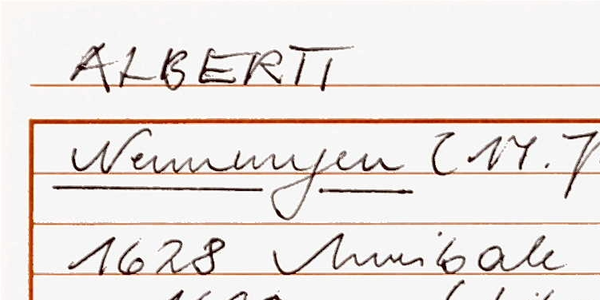 ALBERTI
Nennungen (17. J
1628 Annibale